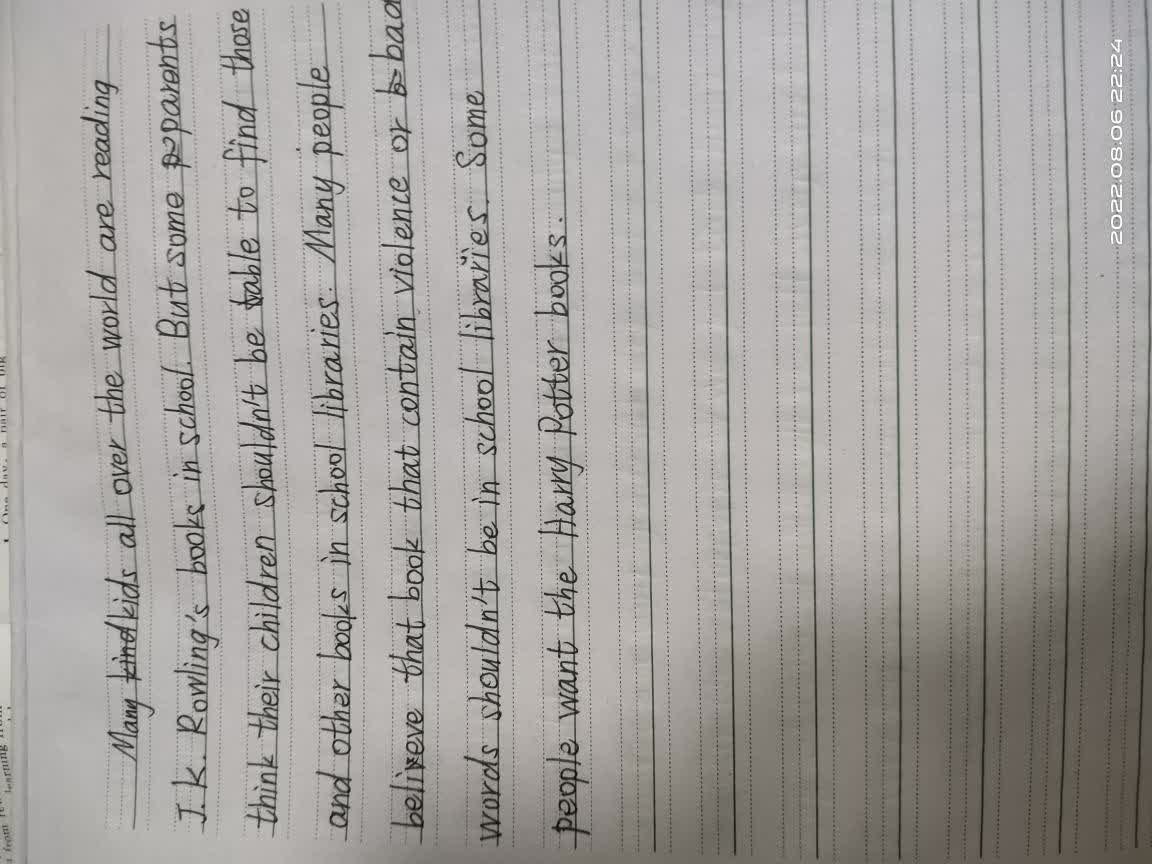 Many kids all over the world are reading
J. K. Rowling's books in school. But some parents
think their children shouldn't be able to find those
and other books in school libraries. Many people
believe that book that contain violence or bad
words shouldn't be in school libraries. Some
people want the Harry Potter books.
2022.08.06 22:24